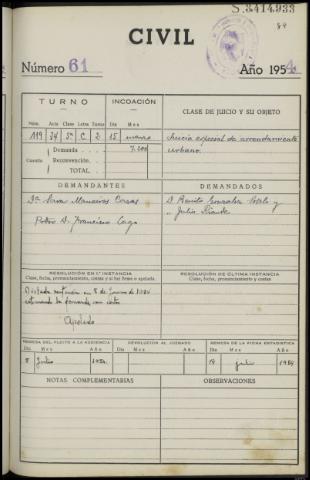 S.3414.933
84
CIVIL
Número 61 Año 1954
TURNO INCOACIÓN CLASE DE JUICIO Y SU OBJETO
Núm. Acto Clase Letra Turno Día Mes
119 34 5ª C 2 15 marzo
Juicio especial de arrendamiento
urbano.
Cuantía Demanda 7.200
Reconvención
TOTAL
DEMANDANTES DEMANDADOS
Dª Sara
D. Benito González y
Pobre D. Francisco
Julia
RESOLUCIÓN EN 1ª INSTANCIA RESOLUCIÓN DE ÚLTIMA INSTANCIA
Clase, fecha, pronunciamiento, costas y si fue firme o apelada Clase, fecha, pronunciamiento y costas
Dictada sentencia en 8 de Junio de 1954
estimando la demanda con costas
Apelada
REMESA DEL PLEITO A LA AUDIENCIA DEVOLUCIÓN AL JUZGADO REMESA DE LA FICHA ESTADÍSTICA
Día Mes Año Día Mes Año Día Mes Año
8 Julio 1954. 19 julio 1954
NOTAS COMPLEMENTARIAS OBSERVACIONES